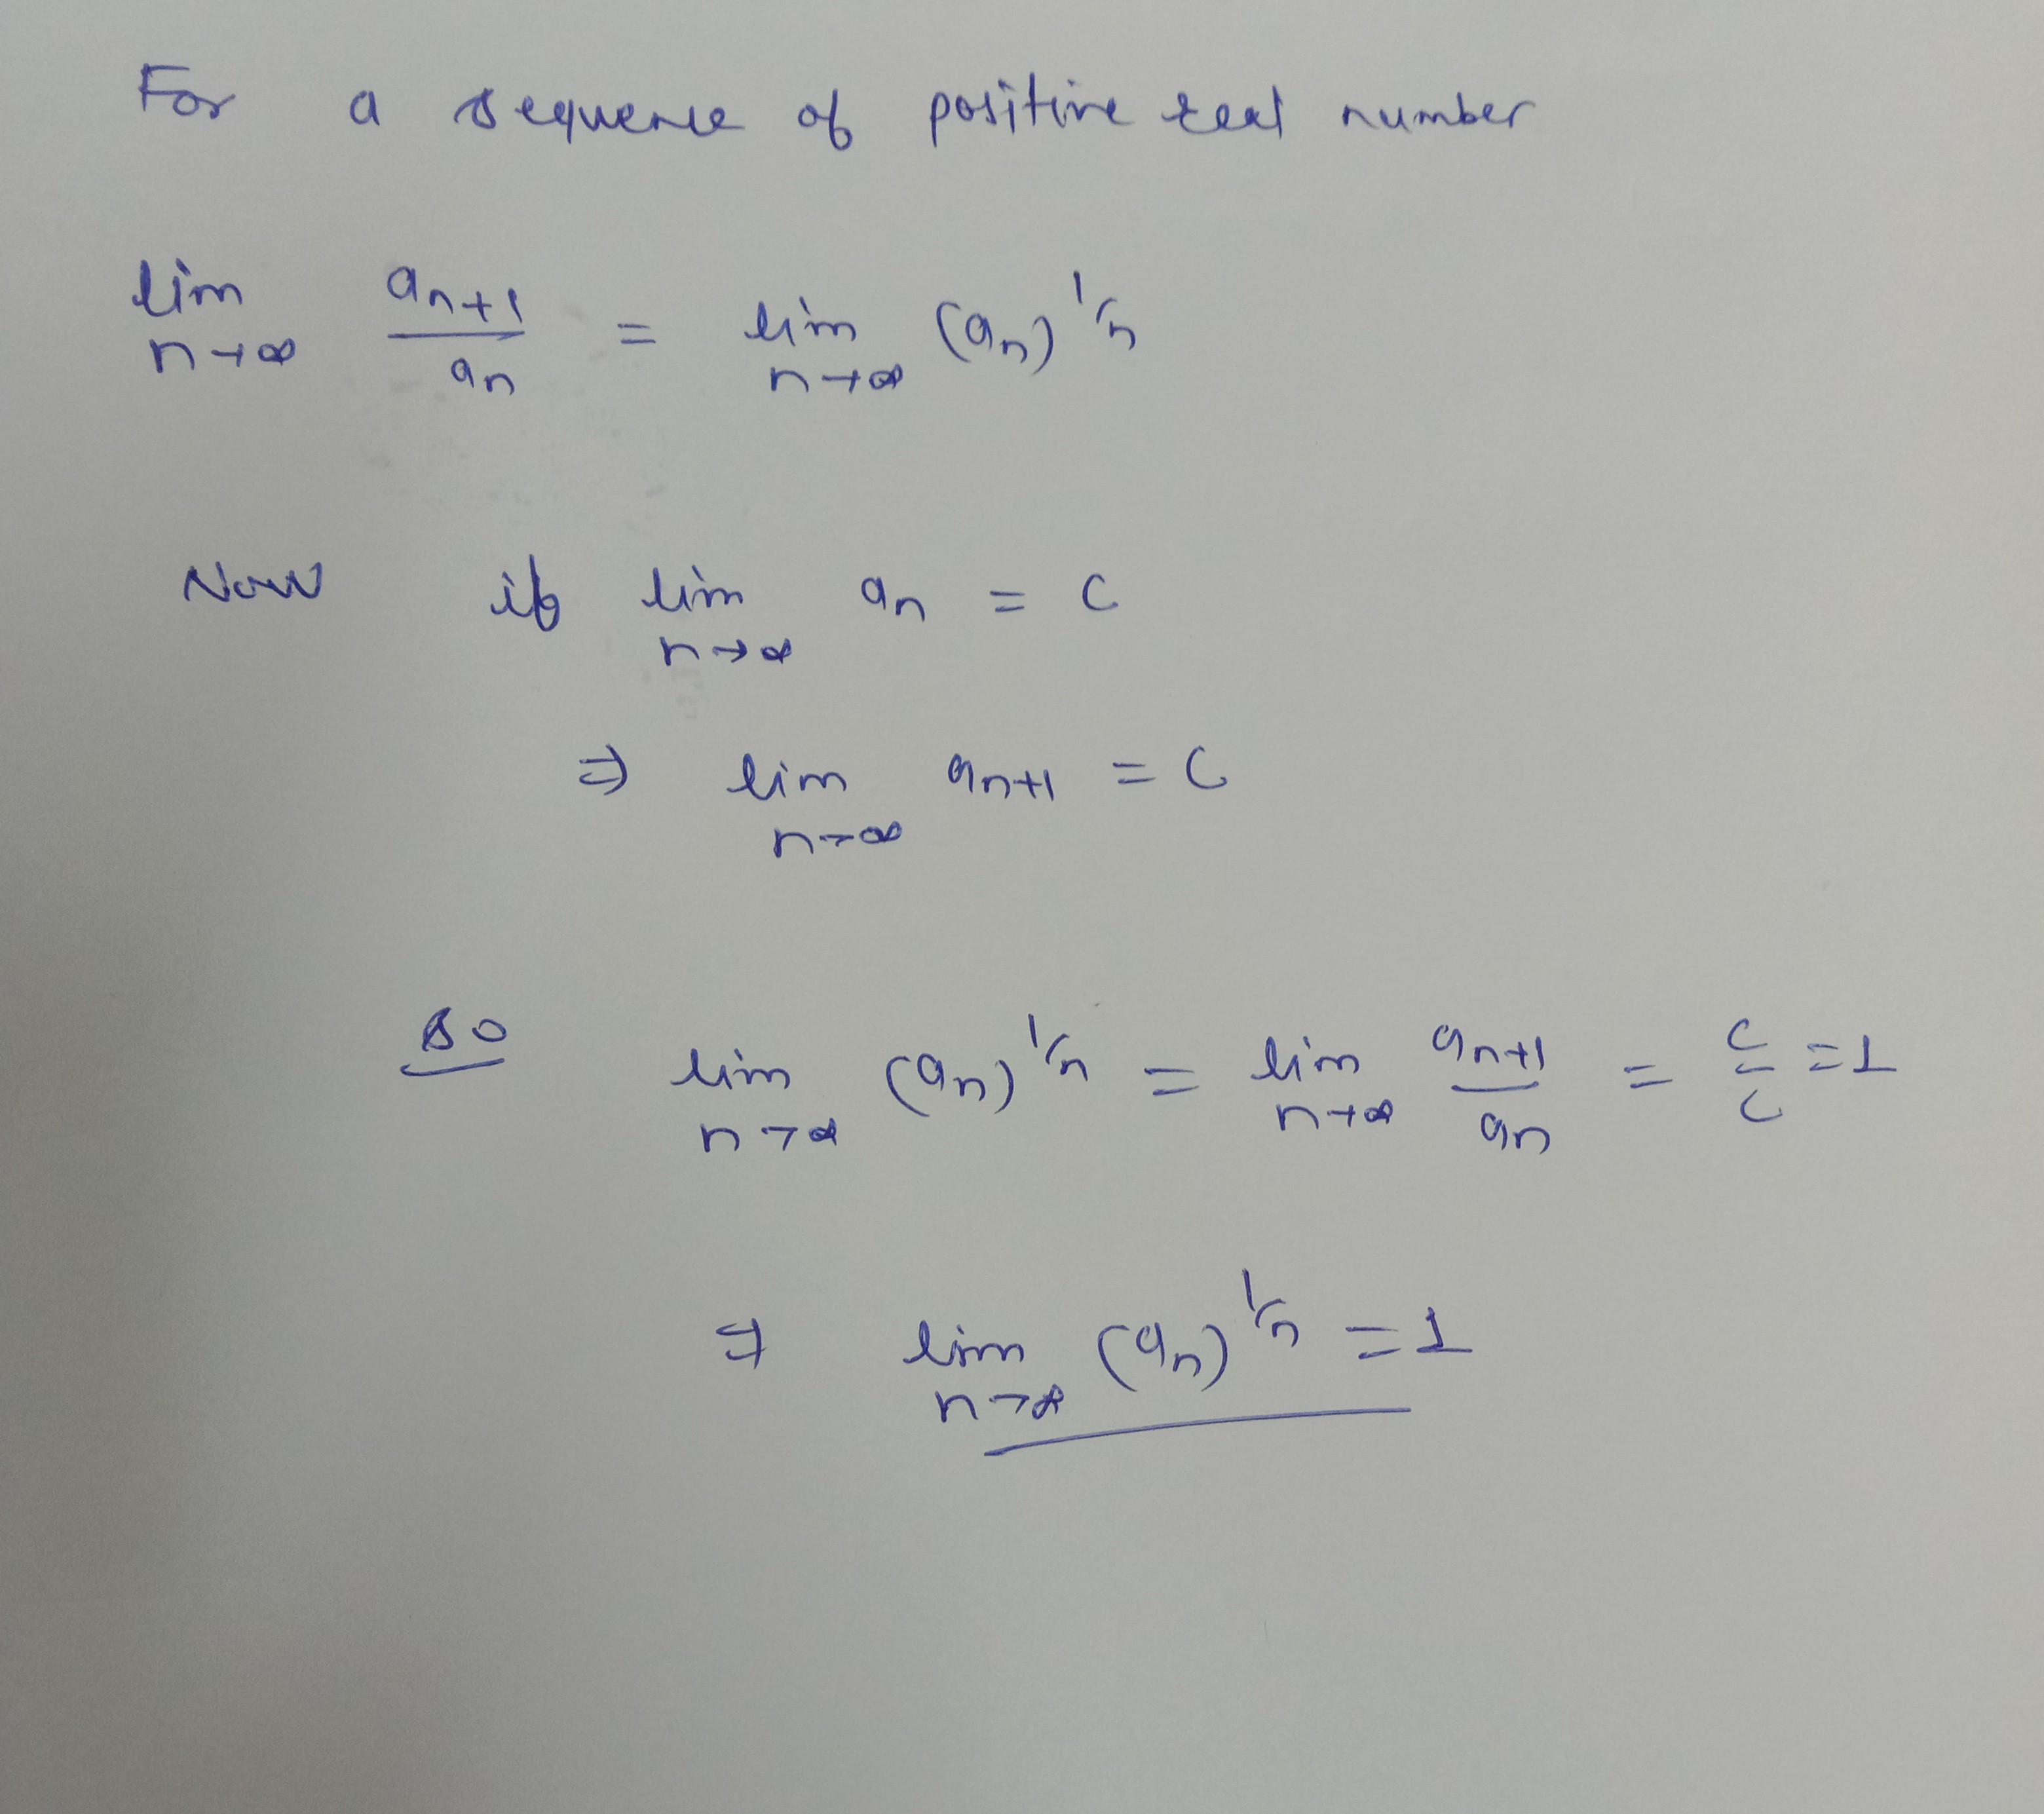 For a sequence of positive real number
lim n→∞ aₙ₊₁/aₙ = lim n→∞ (aₙ)^1/n
Now if lim n→∞ aₙ = c
⇒ lim n→∞ aₙ₊₁ = c
so lim n→∞ (aₙ)^1/n = lim n→∞ aₙ₊₁/aₙ = c/c = 1
⇒ lim n→∞ (aₙ)^1/n = 1